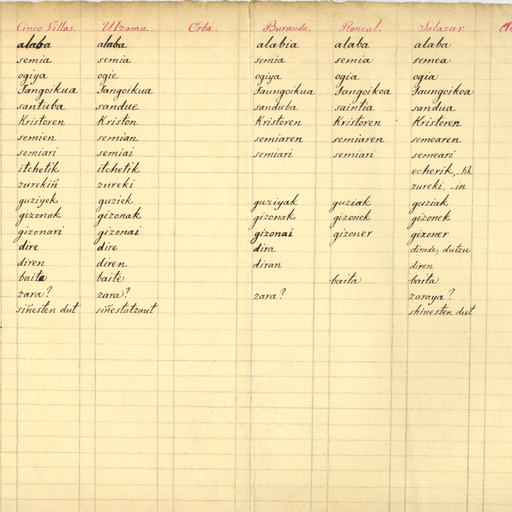 Cinco Villas. Ulzama. Orba. Burunda. Roncal. Salazar.
alaba alaba alabia alaba alaba
semia semia semia semia semea
ogiya ogie ogiya ogia ogia
Jangoikua Jangoikua Jaungoikua Jangoikoa Jaungoikoa
santuba sandue sanduba saintia sandua
Kristoren Kriston Kristoren Kristoren Kristoren
semien semian semiaren semiaren semearen
semiari semiai semiari semiari semeari
itchetik itchetik echerik, -tik
zurekiñ zureki zureki, -in
guziyek guziek guziyak guziak guziak
gizonak gizonak gizonak gizonek gizonek
gizonari gizonai gizonai gizoner gizoner
dire dire dira dirade, dutzu
diren diren diran diren
baita baite baita baita
zara? zara? zara? zaraya?
siñesten dut siñestatzaut shinesten dut